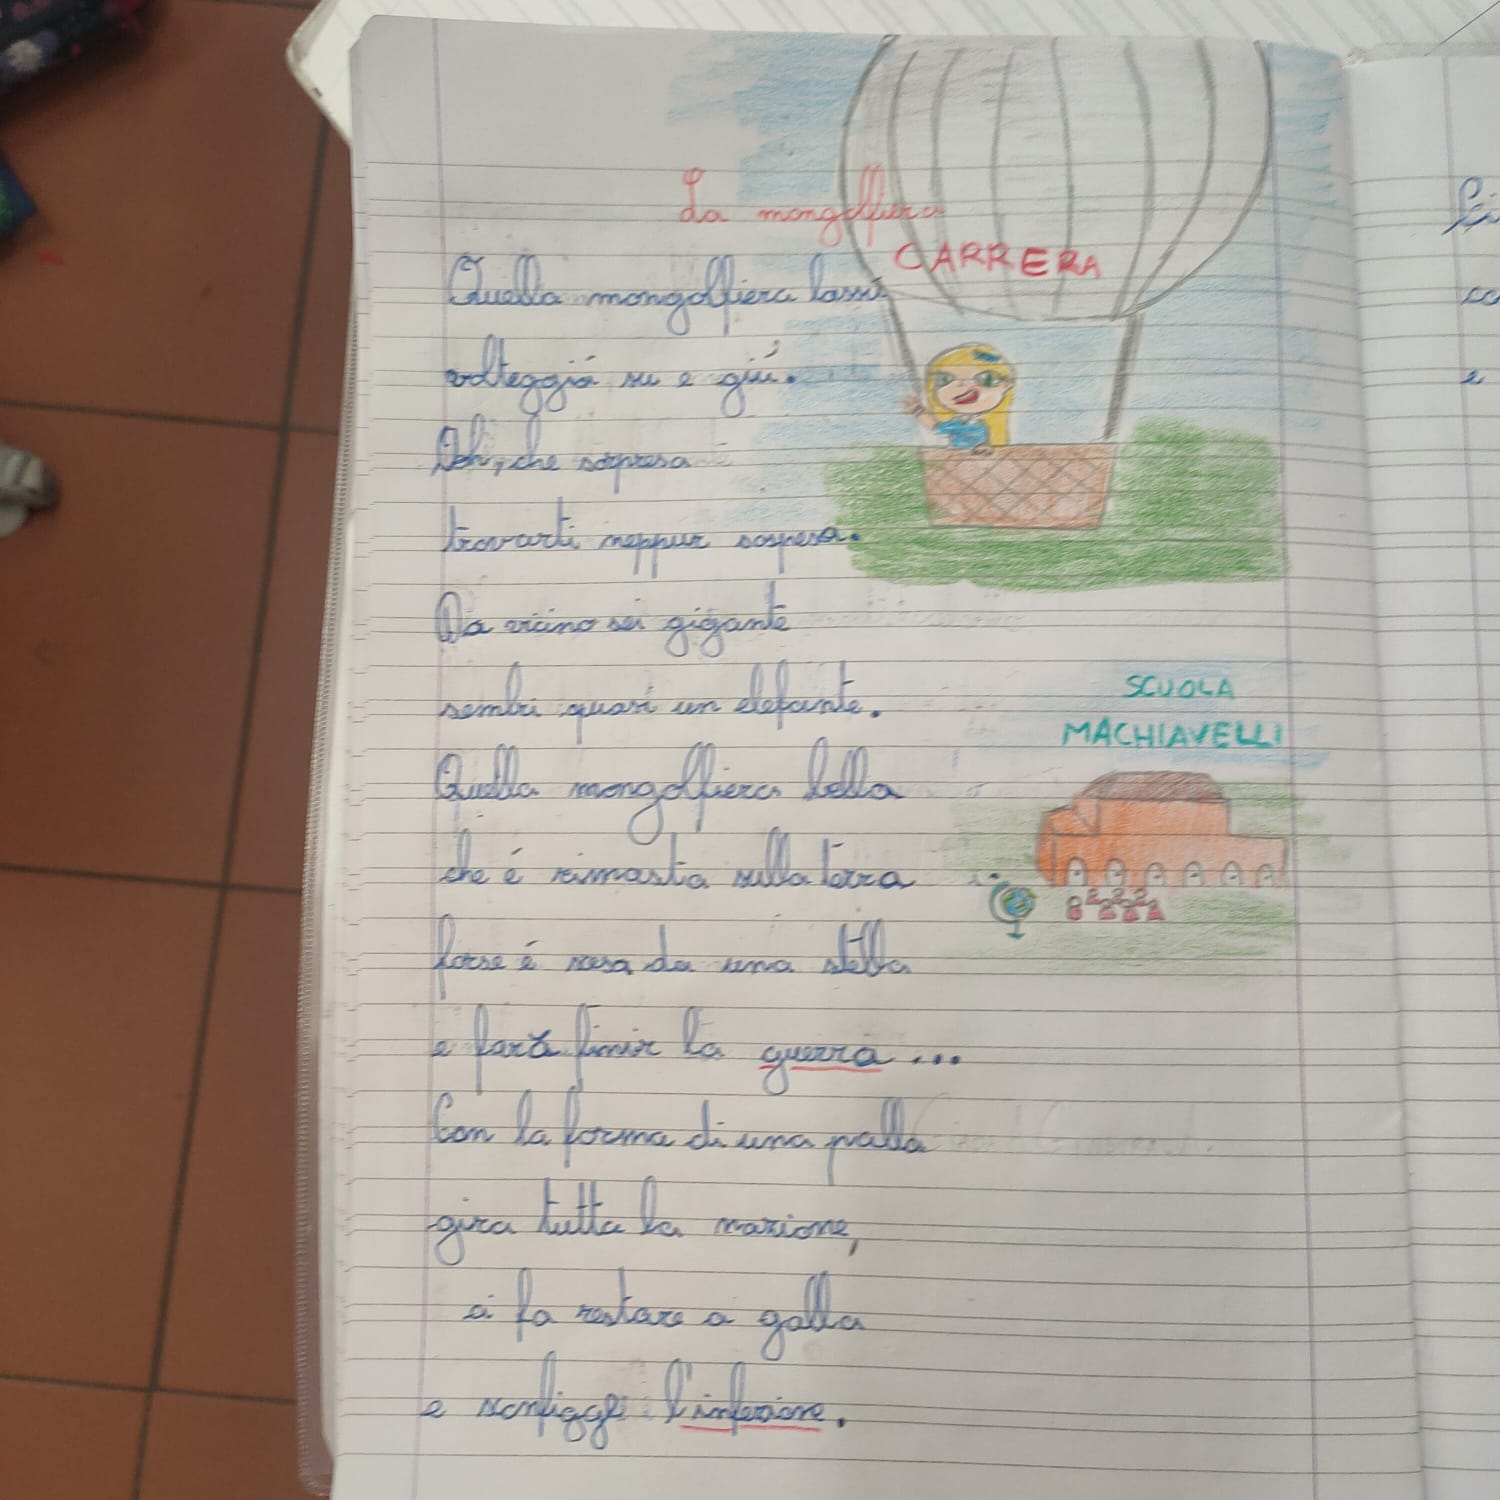 La mongolfiera
CARRERA
Quella mongolfiera lassù
volteggiá su e giú.
Ooh, che sorpresa
trovarti neppur sospesa.
Da vicino sei gigante
sembri quasi un elefante.
SCUOLA
MACHIAVELLI
Quella mongolfiera bella
che é rimasta sulla terra
forse é scesa da una stella
e farà finir la guerra...
Con la forma di una palla
gira tutta la nazione,
ci fa restare a galla
e sconfigge l'infezione.